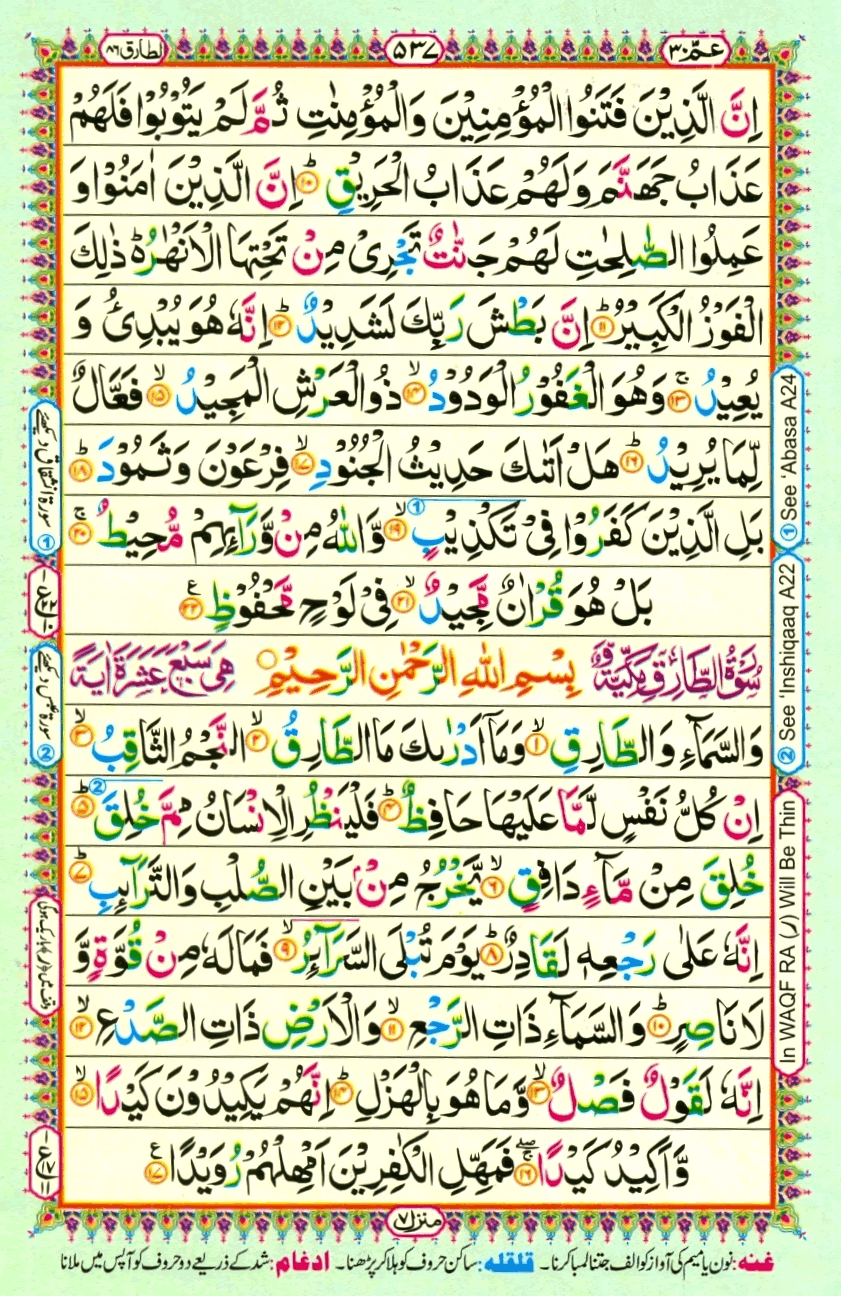 عمّ ٣٠
٥٣٧
الطارق ٨٦
اِنَّ الَّذِيْنَ فَتَنُوا الْمُؤْمِنِيْنَ وَالْمُؤْمِنٰتِ ثُمَّ لَمْ يَتُوْبُوْا فَلَهُمْ
عَذَابُ جَهَنَّمَ وَلَهُمْ عَذَابُ الْحَرِيْقِ ؕ﴿۱۰﴾ اِنَّ الَّذِيْنَ اٰمَنُوْا وَ
عَمِلُوا الصّٰلِحٰتِ لَهُمْ جَنّٰتٌ تَجْرِیْ مِنْ تَحْتِهَا الْاَنْهٰرُ ؕ۬ ذٰلِكَ
الْفَوْزُ الْكَبِيْرُ ؕ﴿۱۱﴾ اِنَّ بَطْشَ رَبِّكَ لَشَدِيْدٌ ؕ﴿۱۲﴾ اِنَّهٗ هُوَ يُبْدِئُ وَ
يُعِيْدُ ۚ﴿۱۳﴾ وَهُوَ الْغَفُوْرُ الْوَدُوْدُ ۙ﴿۱۴﴾ ذُو الْعَرْشِ الْمَجِيْدُ ۙ﴿۱۵﴾ فَعَّالٌ
لِّمَا يُرِيْدُ ؕ﴿۱۶﴾ هَلْ اَتٰىكَ حَدِيْثُ الْجُنُوْدِ ۙ﴿۱۷﴾ فِرْعَوْنَ وَثَمُوْدَ ؕ﴿۱۸﴾
بَلِ الَّذِيْنَ كَفَرُوْا فِیْ تَكْذِيْبٍ ① ۙ﴿۱۹﴾ وَّاللّٰهُ مِنْ وَّرَآئِهِمْ مُّحِيْطٌ ۚ﴿۲۰﴾
بَلْ هُوَ قُرْاٰنٌ مَّجِيْدٌ ۙ﴿۲۱﴾ فِیْ لَوْحٍ مَّحْفُوْظٍ ﴿۲۲﴾ ع
سُوْرَةُ الطَّارِقِ مَكِّيَّةٌ وَّ بِسْمِ اللّٰهِ الرَّحْمٰنِ الرَّحِيْمِ هِیَ سَبْعَ عَشَرَةَ اٰيَةً
وَالسَّمَآءِ وَالطَّارِقِ ۙ﴿۱﴾ وَمَاۤ اَدْرٰىكَ مَا الطَّارِقُ ۙ﴿۲﴾ النَّجْمُ الثَّاقِبُ ۙ﴿۳﴾
اِنْ كُلُّ نَفْسٍ لَّمَّا عَلَيْهَا حَافِظٌ ؕ﴿۴﴾ فَلْيَنْظُرِ الْاِنْسَانُ مِمَّ خُلِقَ ② ؕ﴿۵﴾
خُلِقَ مِنْ مَّآءٍ دَافِقٍ ۙ﴿۶﴾ يَّخْرُجُ مِنْۢ بَيْنِ الصُّلْبِ وَالتَّرَآئِبِ ؕ﴿۷﴾
اِنَّهٗ عَلٰی رَجْعِهٖ لَقَادِرٌ ؕ﴿۸﴾ يَوْمَ تُبْلَی السَّرَآئِرُ ۙ﴿۹﴾ فَمَا لَهٗ مِنْ قُوَّةٍ وَّ
لَا نَاصِرٍ ؕ﴿۱۰﴾ وَالسَّمَآءِ ذَاتِ الرَّجْعِ ۙ﴿۱۱﴾ وَالْاَرْضِ ذَاتِ الصَّدْعِ ۙ﴿۱۲﴾
اِنَّهٗ لَقَوْلٌ فَصْلٌ ۙ﴿۱۳﴾ وَّمَا هُوَ بِالْهَزْلِ ؕ﴿۱۴﴾ اِنَّهُمْ يَكِيْدُوْنَ كَيْدًا ۙ﴿۱۵﴾
وَّاَكِيْدُ كَيْدًا ۚۖ﴿۱۶﴾ فَمَهِّلِ الْكٰفِرِيْنَ اَمْهِلْهُمْ رُوَيْدًا ﴿۱۷﴾ ع
منزل ٧
① See 'Abasa A24
② See 'Inshiqaaq A22
In WAQF RA (ر) Will Be Thin
① سورۃ انشقاق دیکھئے
② سورۃ عبس دیکھئے
غنه: نون یا میم کی آواز کو الف جتنا لمبا کرنا۔ قلقله: ساکن حروف کو ہلا کر پڑھنا۔ ادغام: شد کے ذریعے دو حروف کو آپس میں ملانا